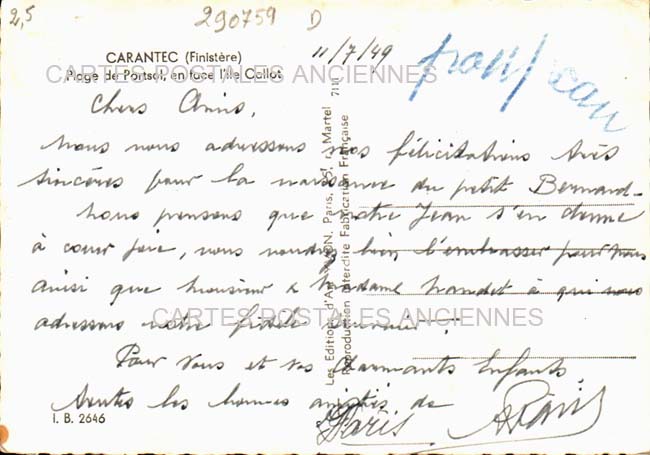 2,5
290759 D
CARANTEC (Finistère)
Plage de Portsol, en face l'Ile Callot
11/7/49
CARTES POSTALES ANCIENNES
Chers Amis,
Nous vous adressons nos félicitations très
sincères pour la naissance du petit Bernard.
Nous pensons que notre Jean s'en donne
à cœur joie, vous voudrez bien l'embrasser pour nous
ainsi que Monsieur & Madame à qui nous
adressons notre fidèle souvenir.
CARTES POSTALES ANCIENNES
Pour Vous et vos charmants Enfants
toutes les bonnes amitiés de
Paris
I. B. 2646
Les Editions d'Art YVON, Paris, 15, r. Martel 711
Reproduction Interdite Fabrication Française